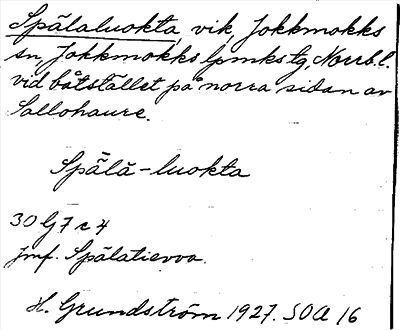 Spålaluokta, vik, Jokkmokks
sn, Jokkmokks lpmks tg, Norrb. l.
vid båtstället på norra sidan av
Sallohaure.
Spå̄lā-luokta
30 G 7 c 4
jmf. Spålatievva.
H. Grundström 1927. SOA 16